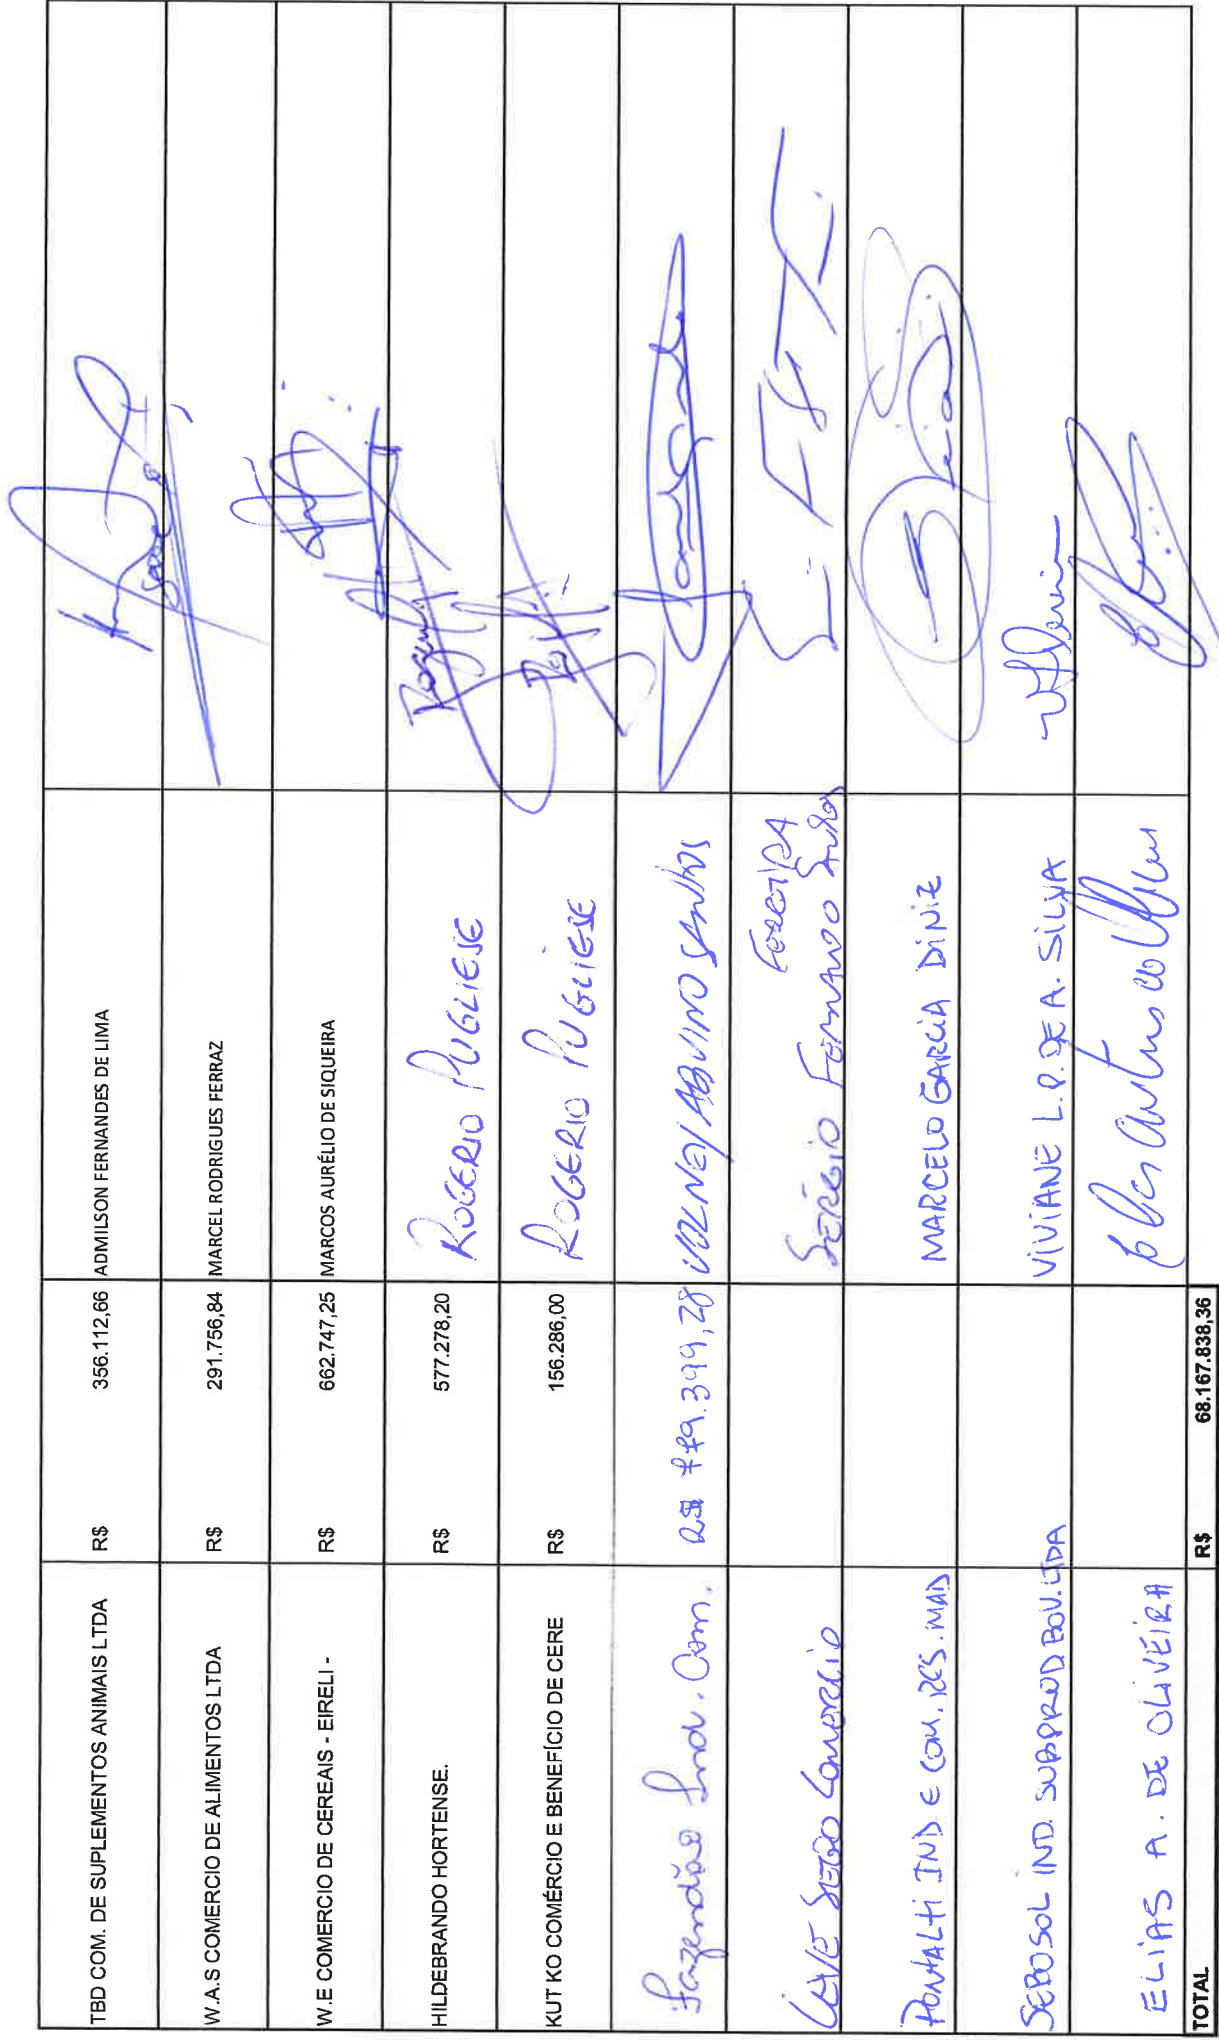 TBD COM. DE SUPLEMENTOS ANIMAIS LTDA R$ 356.112,66 ADMILSON FERNANDES DE LIMA
W.A.S COMERCIO DE ALIMENTOS LTDA R$ 291.756,84 MARCEL RODRIGUES FERRAZ
W.E COMERCIO DE CEREAIS - EIRELI - R$ 662.747,25 MARCOS AURÉLIO DE SIQUEIRA
HILDEBRANDO HORTENSE. R$ 577.278,20 ROGERIO PUGLIESE
KUT KO COMÉRCIO E BENEFÍCIO DE CERE R$ 156.286,00 ROGERIO PUGLIESE
Fazendão Ind. Com. R$ 779.399,28 VOLNEY ALBUINO SANTOS
Comercio SÉRGIO Fernando
PONTALTI IND E COM. RES. MAD MARCELO GARCIA DINIZ
SEBOSOL IND. SUBPROD BOV. LTDA VIVIANE L.P. DE A. SILVA
ELIAS A. DE OLIVEIRA
TOTAL R$ 68.167.838,36